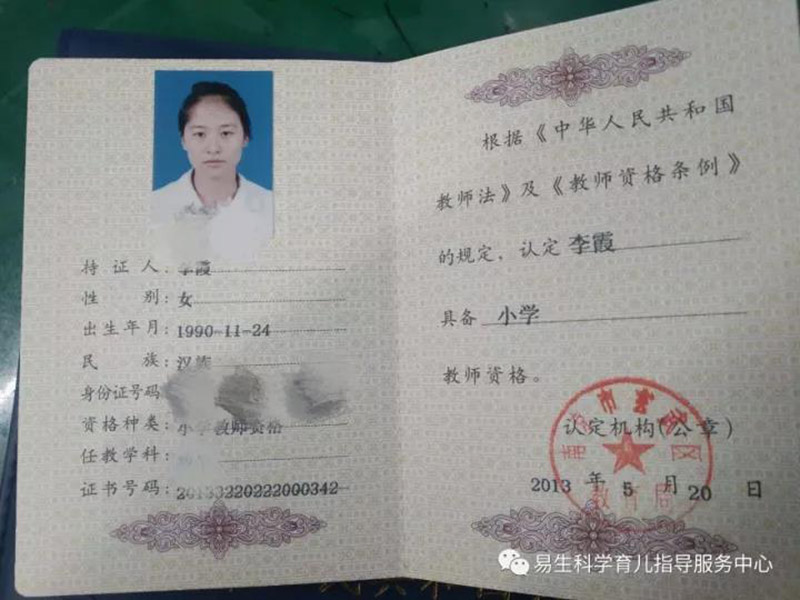 持证人：李霞
性别：女
出生年月：1990-11-24
民族：汉族
身份证号码
资格种类：小学教师资格
任教学科：
证书号码：20133220222000342
根据《中华人民共和国
教师法》及《教师资格条例》
的规定，认定 李霞
具备 小学
教师资格。
认定机构（公章）
2013 年 5 月 20 日
教育局
易生科学育儿指导服务中心